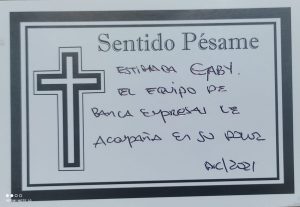 Sentido Pésame
ESTIMADA GABY.
EL EQUIPO DE
BANCA EMPRESAS LE
ACOMPAÑA EN SU DOLOR
DIC/2021